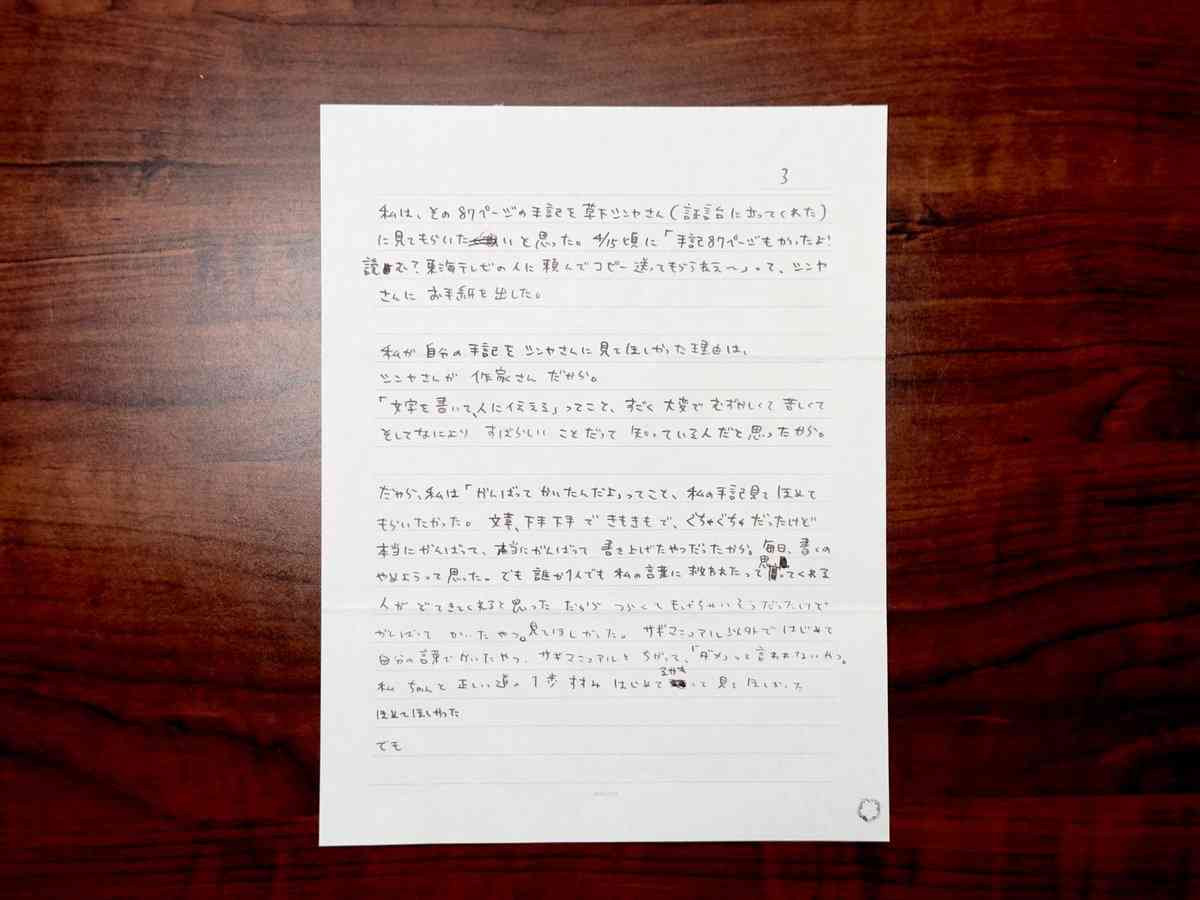 3
私は、その87ページの手記を草下シンヤさん(証言台に立ってくれた)
に見てもらいたいと思った。4/15頃に「手記87ページもかったよ!
読む?東海テレビの人に頼んでコピー送ってもらうねえ〜」って、シンヤ
さんにお手紙を出した。
私が自分の手記をシンヤさんに見てほしかった理由は、
シンヤさんが作家さんだから。
「文字を書いて、人に伝える」ってこと、すごく大変でむずかしくて苦しくて
そしてなによりすばらしいことだって知っている人だと思ったから。
だから、私は「がんばってかいたんだよ」ってこと、私の手記見てほめて
もらいたかった。文章、下手下手できもきもで、ぐちゃぐちゃだったけど
本当にがんばって、本当にがんばって書き上げたやつだったから。毎日、書くの
やめようって思った。でも誰か1人でも私の言葉に救われたって思ってくれる
人がでてきてくれると思っただからつらくてもにげちゃいそうだったけど
がんばってかいたやつ。見てほしかった。サギマニュアル以外ではじめて
自分の言葉でかいたやつ。サギマニュアルとちがって、「ダメ」って言われないやつ。
私ちゃんと正しい道の1歩すすみはじめてるかもって見てほしかった
ほめてほしかった
でも